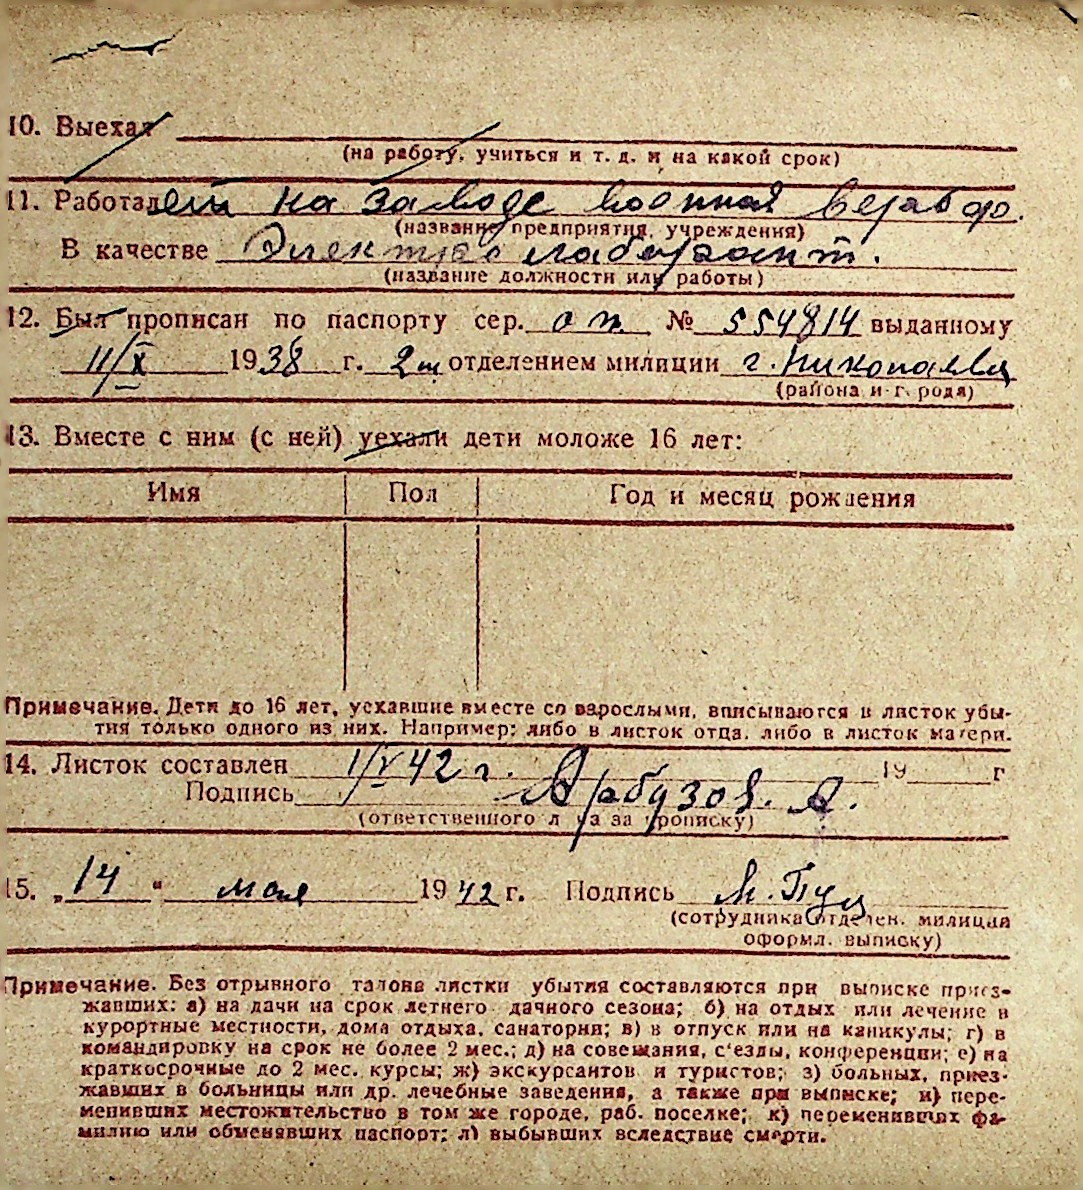 10. Выехал
(на работу, учиться и т. д. и на какой срок)
11. Работает на заводе военная
(название предприятия, учреждения)
В качестве Электро лаборант.
(название должности или работы)
12. Был прописан по паспорту сер. о п. № 554814 выданному
11/X 1938 г. 2 м отделением милиции г. Николаева
(района и города)
13. Вместе с ним (с ней) уехали дети моложе 16 лет:
Имя Пол Год и месяц рождения
Примечание. Дети до 16 лет, уехавшие вместе со взрослыми, вписываются в листок убы-
тия только одного из них. Например: либо в листок отца, либо в листок матери.
14. Листок составлен 1/V 42 г. 19 г
Подпись Арбузов. А.
(ответственного лица за прописку)
15. „14“ мая 1942 г. Подпись М. Пуц
(сотрудника отделен. милиции
оформл. выписку)
Примечание. Без отрывного талона листки убытия составляются при выписке приез-
жавших: а) на дачи на срок летнего дачного сезона; б) на отдых или лечение в
курортные местности, дома отдыха, санатории; в) в отпуск или на каникулы; г) в
командировку на срок не более 2 мес.; д) на совещания, с'езды, конференции; е) на
краткосрочные до 2 мес. курсы; ж) экскурсантов и туристов; з) больных, приез-
жавших в больницы или др. лечебные заведения, а также при выписке; и) пере-
менивших местожительство в том же городе, раб. поселке; к) переменивших фа-
милию или обменявших паспорт; л) выбывших вследствие смерти.